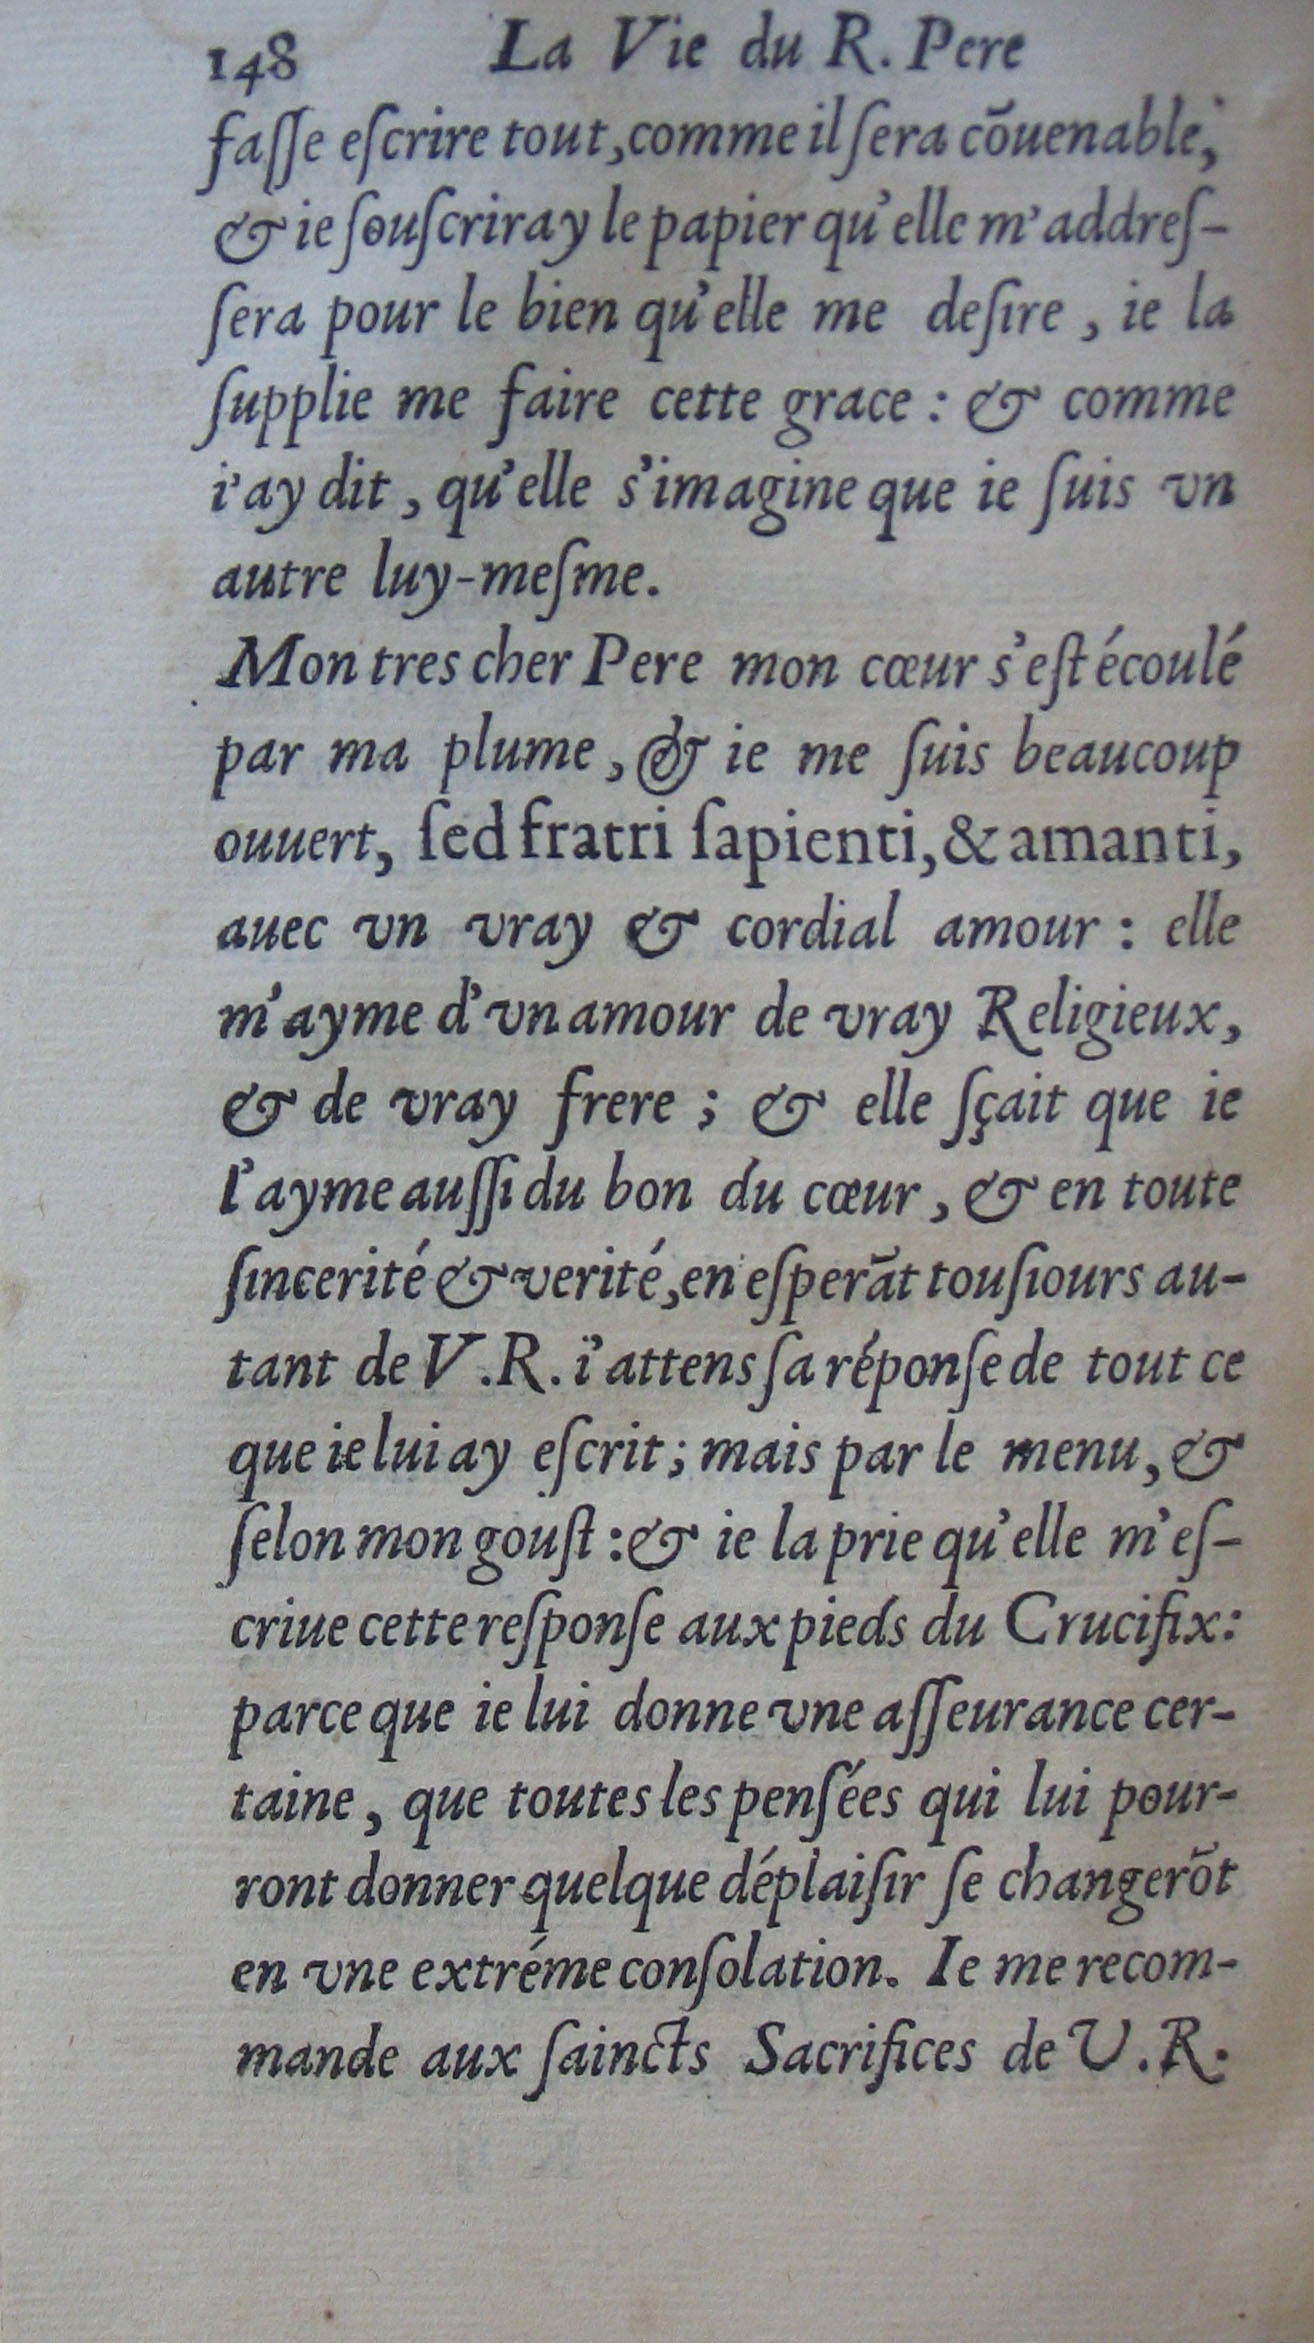 148 La Vie du R. Pere
faſſe eſcrire tout, comme il ſera cōuenable,
& ie ſouſcriray le papier qu'elle m'addreſ-
ſera pour le bien qu'elle me deſire, ie la
ſupplie me faire cette grace : & comme
i'ay dit, qu'elle s'imagine que ie ſuis vn
autre luy-meſme.
Mon tres cher Pere mon cœur s'eſt écoulé
par ma plume, & ie me ſuis beaucoup
ouuert, ſed fratri ſapienti, & amanti,
auec vn vray & cordial amour : elle
m'ayme d'vn amour de vray Religieux,
& de vray frere ; & elle ſçait que ie
l'ayme auſſi du bon du cœur, & en toute
ſincerité & verité, en eſperāt touſiours au-
tant de V.R. i'attens ſa réponſe de tout ce
que ie lui ay eſcrit ; mais par le menu, &
ſelon mon gouſt : & ie la prie qu'elle m'eſ-
criue cette reſponſe aux pieds du Crucifix :
parce que ie lui donne vne aſſeurance cer-
taine, que toutes les penſées qui lui pour-
ront donner quelque déplaiſir ſe changerōt
en vne extréme conſolation. Ie me recom-
mande aux ſaincts Sacrifices de V.R.